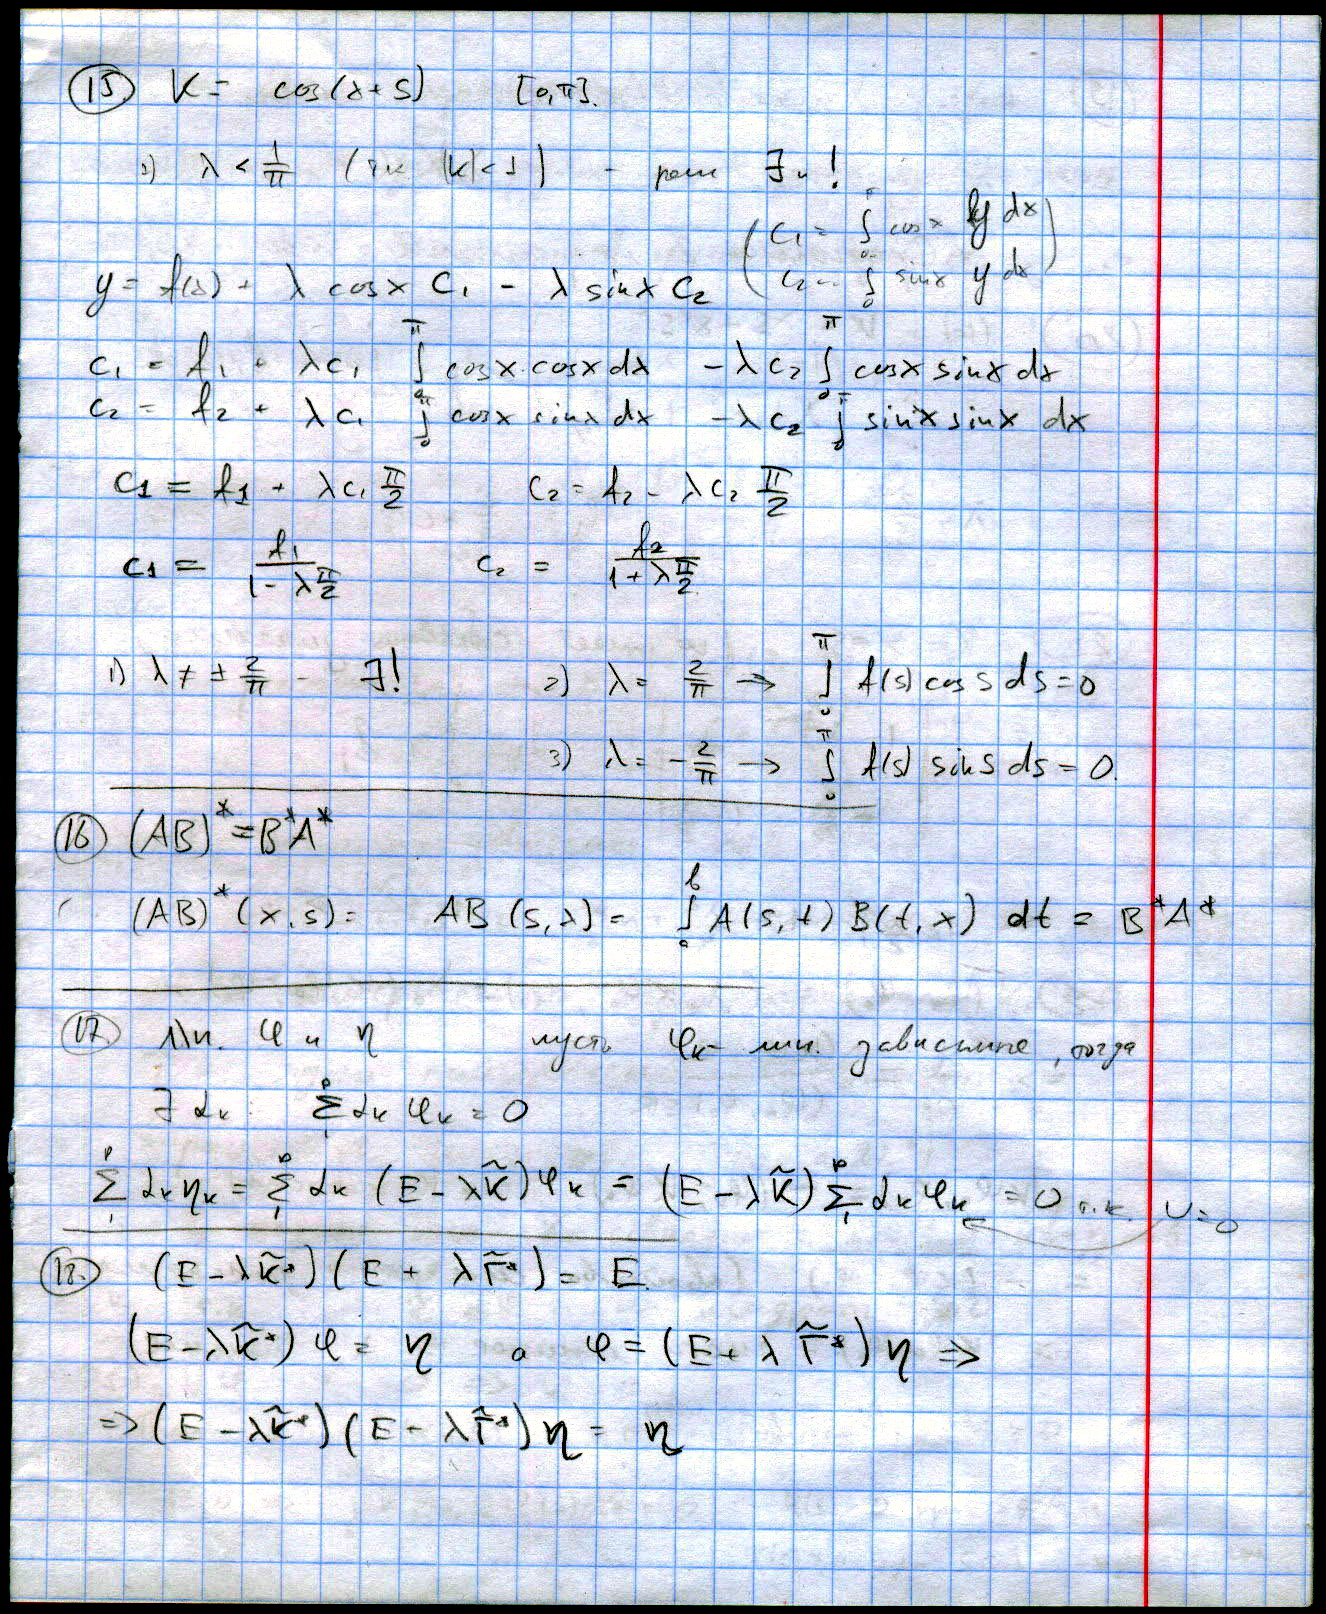 (15) K = cos(x+s) [0,π].
1) λ < 1/π (т.к. |K|<1) - реш ∃ и !
(c₁ = ∫₀^π cos x y dx
c₂ = ∫₀^π sin x y dx)
y = f(x) + λ cosx C₁ - λ sinx C₂
c₁ = f₁ + λc₁ ∫₀^π cosx·cosx dx - λc₂ ∫₀^π cosx sinx dx
c₂ = f₂ + λc₁ ∫₀^π cosx sinx dx - λc₂ ∫₀^π sinx sinx dx
c₁ = f₁ + λc₁ π/2 c₂ = f₂ - λc₂ π/2
c₁ = f₁/(1-λπ/2) c₂ = f₂/(1+λπ/2)
1) λ ≠ ± 2/π - ∃! 2) λ = 2/π → ∫₀^π f(s) cos s ds = 0
3) λ = -2/π → ∫₀^π f(s) sin s ds = 0.
(16) (AB)* = B*A*
(AB)*(x,s) = AB(s,x) = ∫ₐᵇ A(s,t) B(t,x) dt = B*A*
(17.) φ и η пусть φₖ - лин. зависимые, тогда
∃ αₖ: Σ₁ᵖ αₖφₖ = 0
Σ₁ᵖ αₖηₖ = Σ₁ᵖ αₖ (E - λK̃)φₖ = (E - λK̃) Σ₁ᵖ αₖφₖ = 0 т.к. = 0
(18.) (E - λK̃*)(E + λΓ̃*) = E.
(E - λK̃*) φ = η а φ = (E + λ Γ̃*) η ⇒
⇒ (E - λK̃*)(E - λΓ̃*) η = η